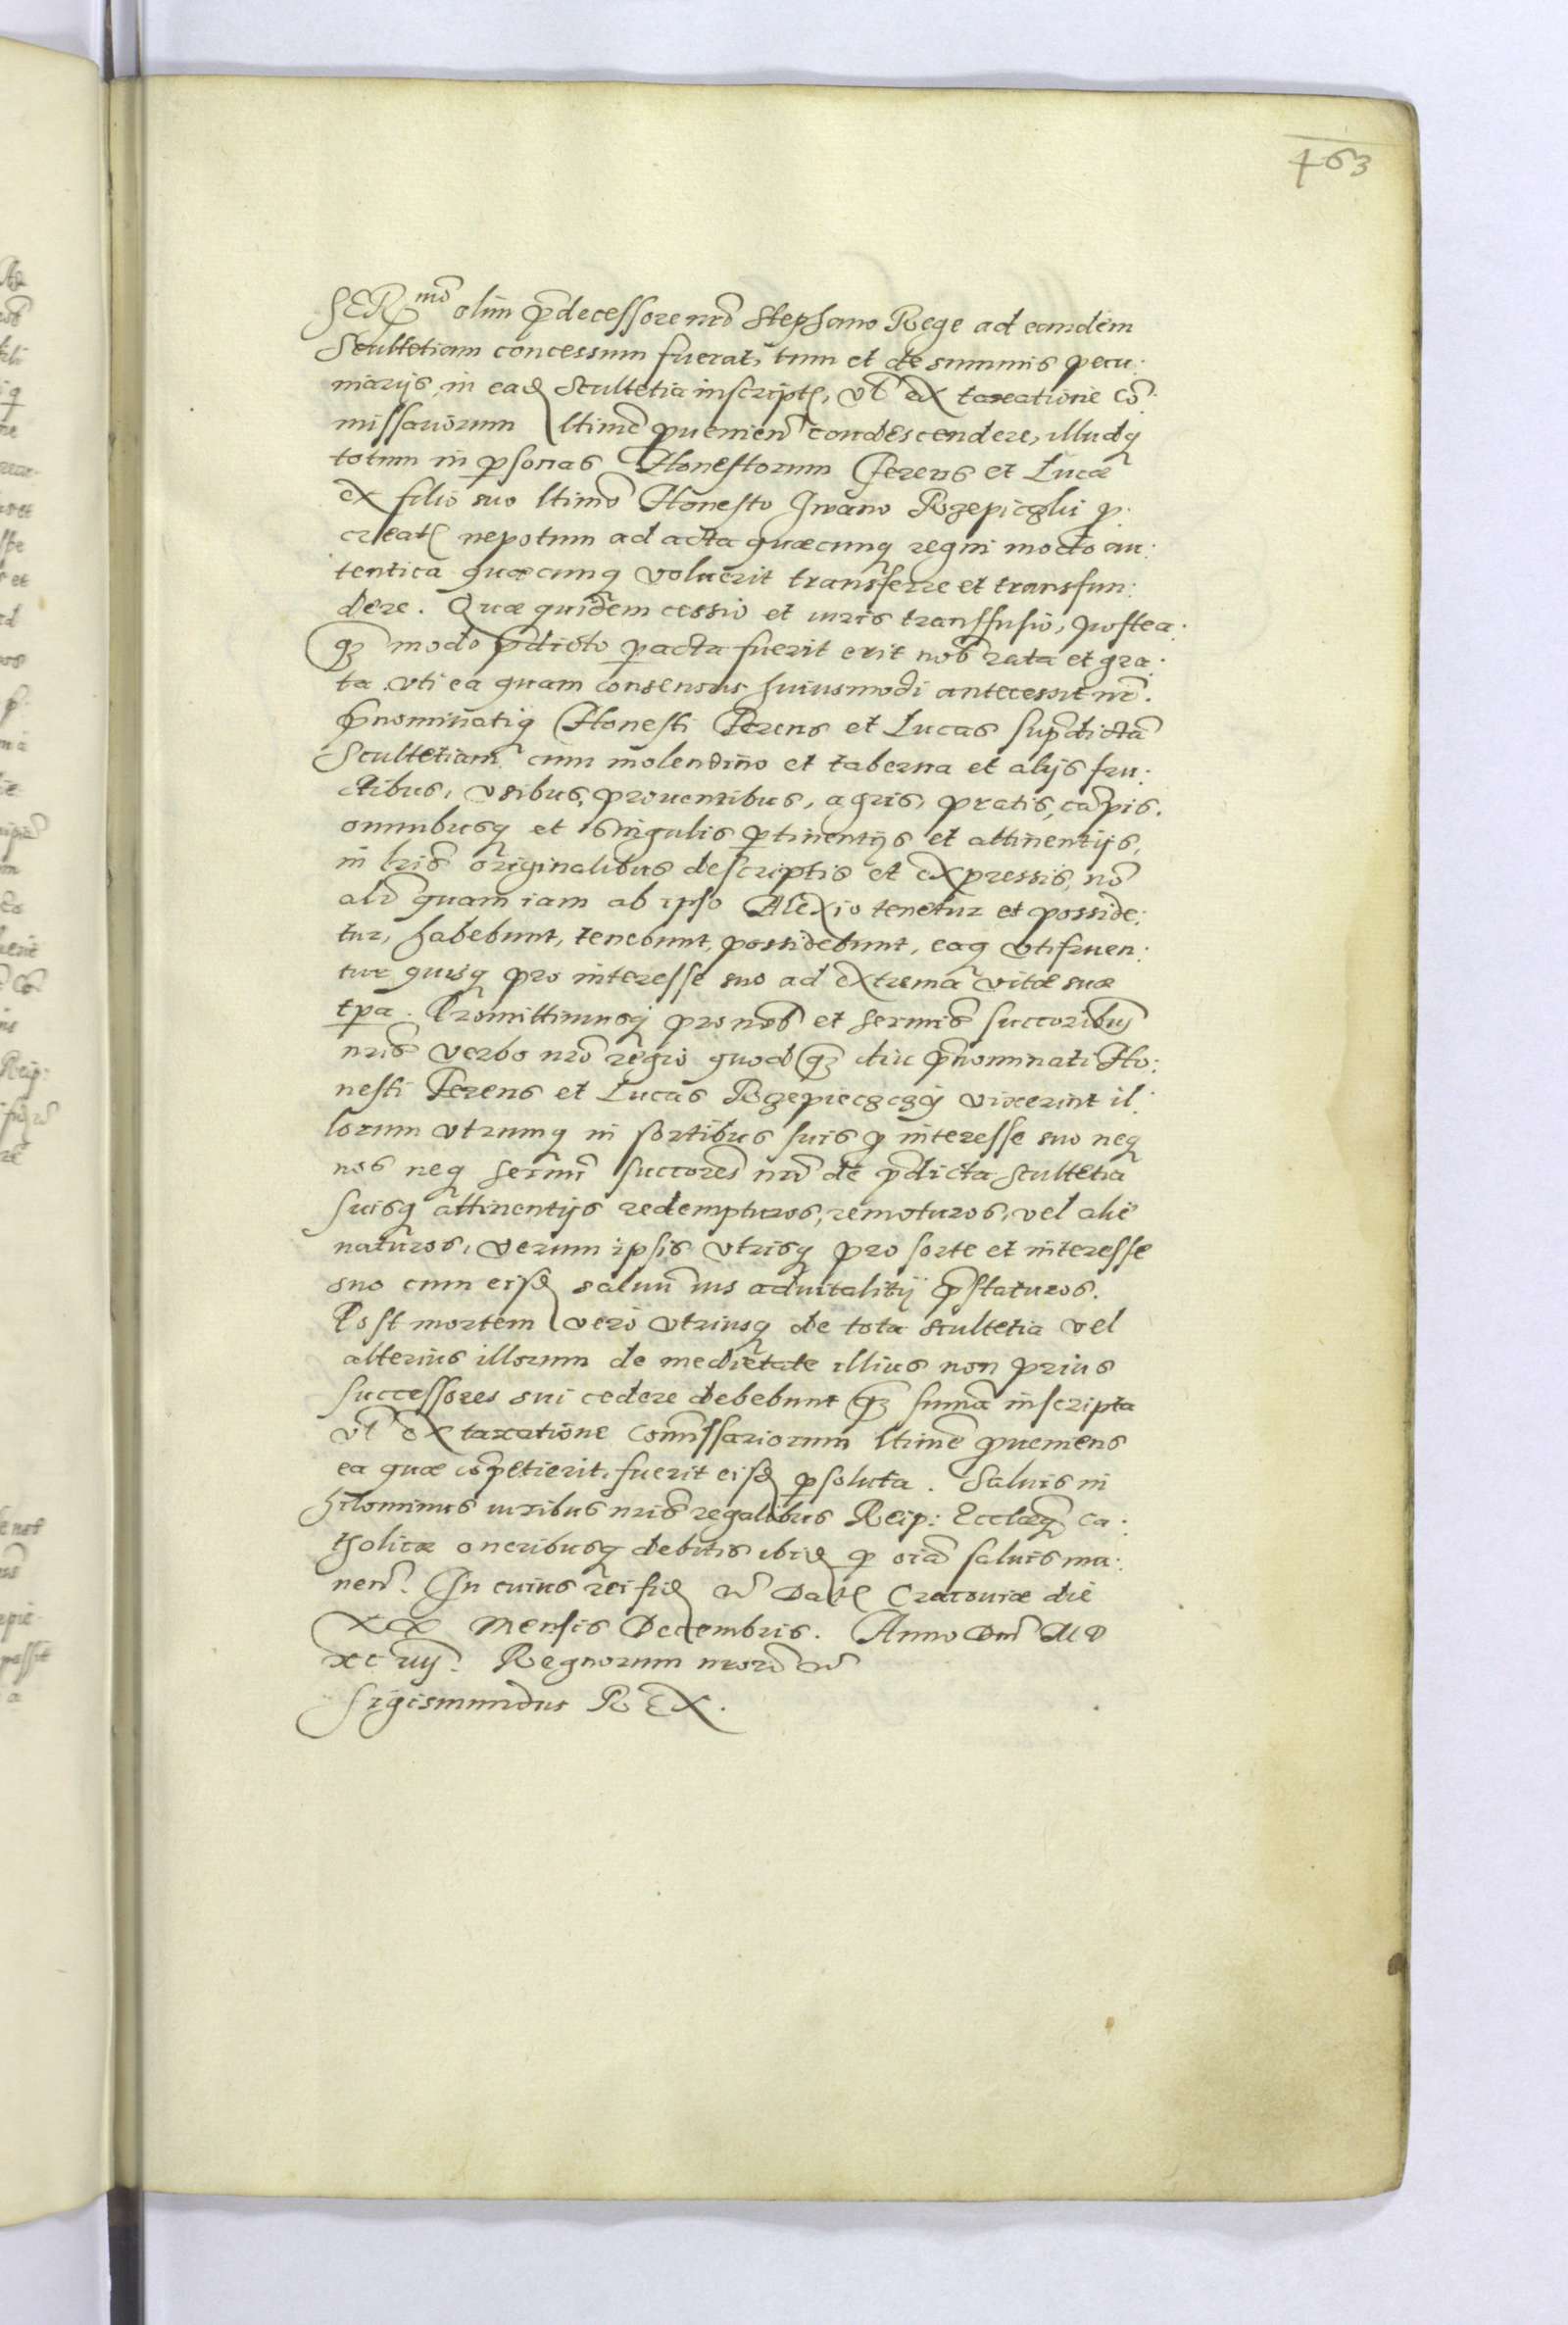 463
SERmo olim p̄decessore nr̄o Stephano Rege ad eandem
Scultetiam concessum fuerat, tum et de summis pecu:
niarijs, in ead Scultetia inscript, vl̄ ex taxatione cō:
missariorum ltime ꝓuenien̄ condescendere, illudq
totum in ꝑsonas Honestorum Ferens et Lucæ
ex filio suo ltimo Honesto Iwano Rzepiczki ꝓ:
creat nepotum ad acta quæcunq regni modo au:
tentica quæcunq voluerit transferre et transfun:
dere. Quæ quidem cessio et iuris transfusio, postea:
qz modo p̄dicto ꝑacta fuerit erit nob̄ rata et gra:
ta vti ea quam consensus huiusmodi antecessit nr̄.
P̄nominatiq Honesti Ferens et Lucas sup̄dictā
Scultetiam cum molendino et taberna et alijs fru:
ctibus, vsibus, prouentibus, agris, pratis, cāpis.
omnibusq et singulis ꝑtinentijs et attinentijs,
in lr̄is originalibus descriptis et expressis, nō
alr̄ quam iam ab ipso Alexio tenetur et posside:
tur, habebunt, tenebunt, possidebunt, eaq vtifruen:
tur quisq pro interesse suo ad extrema vitæ suæ
tꝑa. Promittimusq pro nob̄ et sermis succoribus
nr̄is verbo nr̄o regio quod qz diu p̄nominati Ho:
nesti Ferens et Lucas Rzepieczczy vixerint il:
lorum vtrumq in sortibus suis ꝓ interesse suo neq
nos neq sermi succores nr̄i de p̄dicta scultetia
suisq attinentijs redempturos, remoturos, vel alie
naturos, verum ipsis vtrisq pro sorte et interesse
suo cum eisd saluū ius aduitalitij p̄staturos.
Post mortem vero vtriusq de tota scultetia vel
alterius illorum de medietate illius non prius
successores sui cedere debebunt qz summa inscripta
vl̄ ex taxatione Commissariorum ltime ꝓueniens
ea quæ cōpetierit, fuerit eisd ꝑsoluta. Saluis ni
hilominus iuribus nr̄is regalibus Reip: Ecclæq Ca:
tholicæ oneribusq debitis ibid ꝑ oīa saluis ma:
nen̄. In cuius rei fid Dat Cracouiæ die
XX Mensis Decembris. Anno Dni MD
Regnorum nrorum
Sigismundus REX.